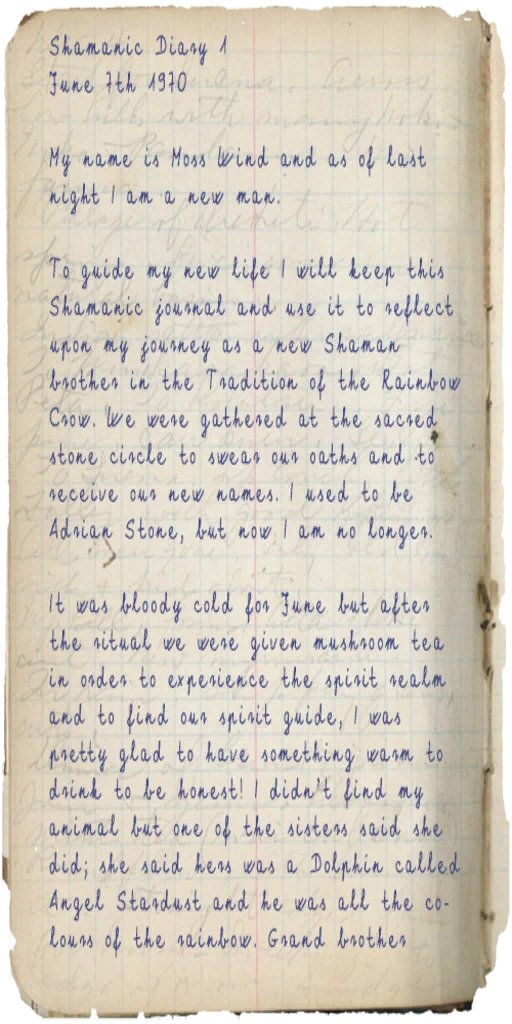 Shamanic Diary 1
June 7th 1970
My name is Moss Wind and as of last
night I am a new man.
To guide my new life I will keep this
Shamanic journal and use it to reflect
upon my journey as a new Shaman
brother in the Tradition of the Rainbow
Crow. We were gathered at the sacred
stone circle to swear our oaths and to
receive our new names. I used to be
Adrian Stone, but now I am no longer.
It was bloody cold for June but after
the ritual we were given mushroom tea
in order to experience the spirit realm
and to find our spirit guide, I was
pretty glad to have something warm to
drink to be honest! I didn't find my
animal but one of the sisters said she
did; she said hers was a Dolphin called
Angel Stardust and he was all the co-
lours of the rainbow. Grand brother